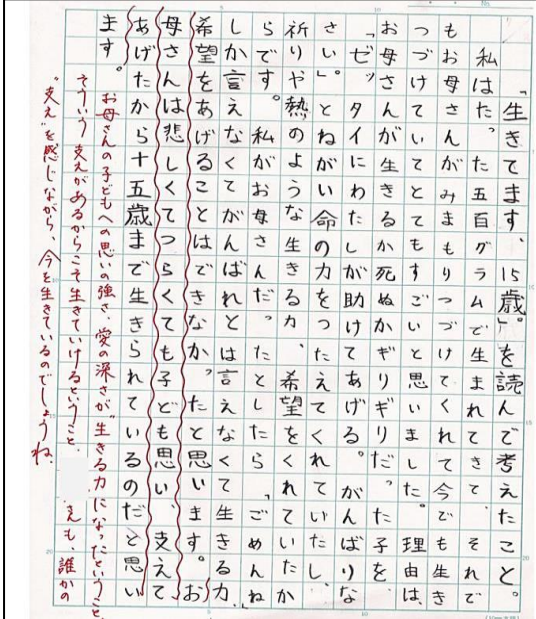 「生きてます、15歳。」を読んで考えたこと。
私はたった五百グラムで生まれてきて、それで
もお母さんがみまもりつづけてくれて今でも生き
つづけていてとてもすごいと思いました。理由は、
お母さんが生きるか死ぬかギリギリだった子を
「ゼッタイにわたしが助けてあげる。がんばりな
さい」とねがい命の力をつたえてくれていたし、
祈りや熱のような生きる力、希望をくれていたか
らです。私がお母さんだったとしたら「ごめんね
しか言えなくてがんばれとは言えなくて生きる力、
希望をあげることはできなかったと思います。お
母さんは悲しくてつらくても子ども思い、支えて
あげたから十五歳まで生きられているのだと思い
ます。
お母さんの子どもへの思いの強さ、愛の深さが"生きる力"になったということ、
そういう支えがあるからこそ生きていけるということ、
さんも、誰かの
"支え"を感じながら、今を生きているのでしょうね。